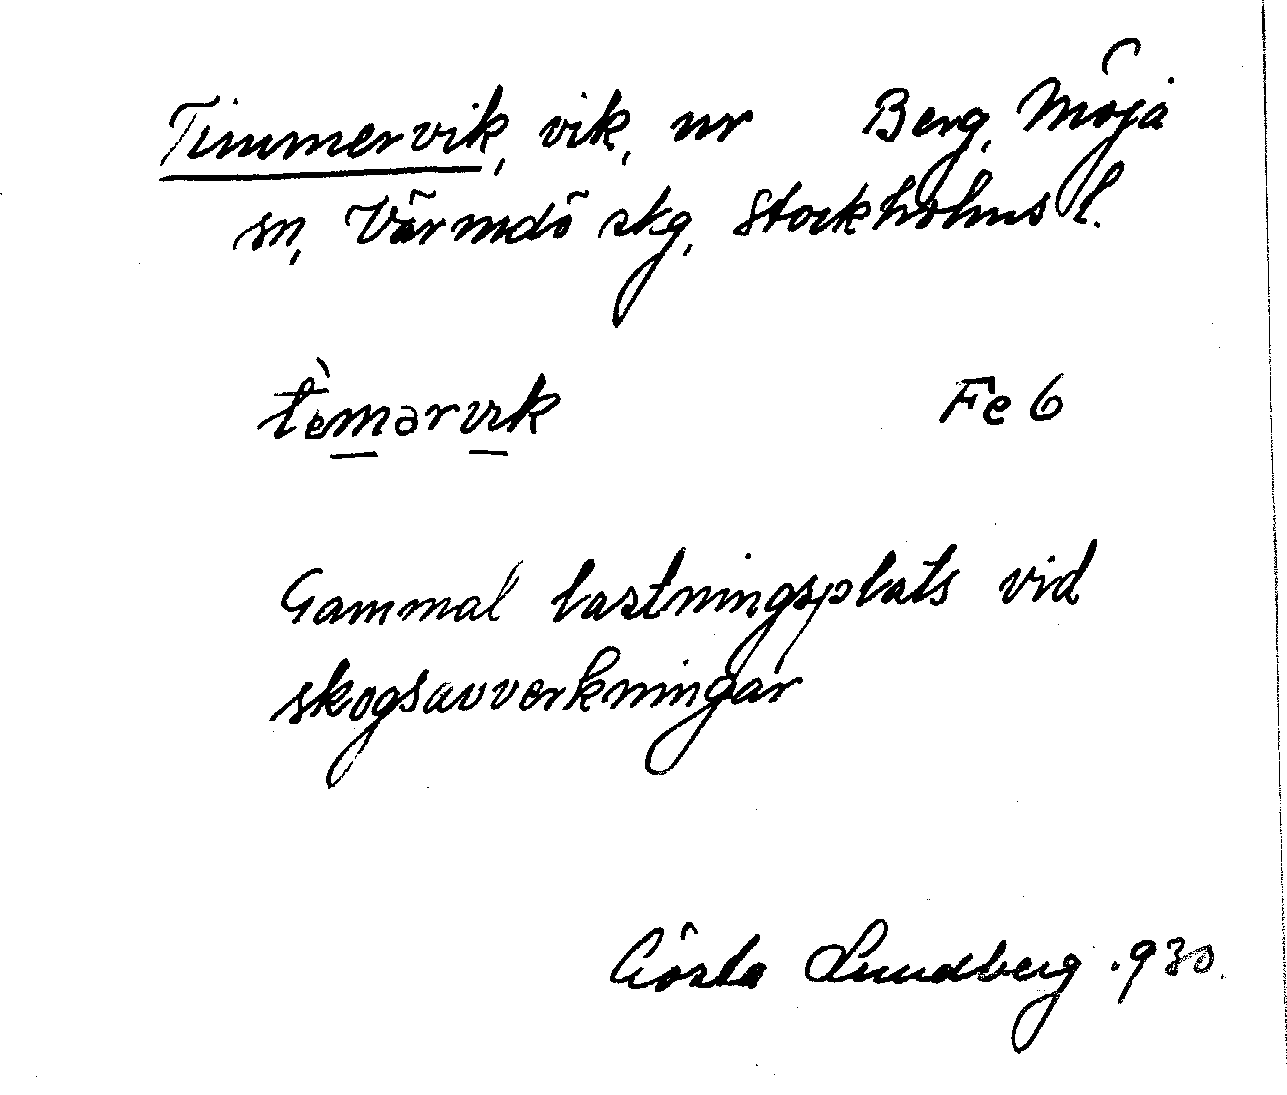 Timmervik, vik, nr Berg, Möja
sn, Värmdö skg, Stockholms l.
tèmərvik Fe 6
Gammal lastningsplats vid
skogsavverkningar
Gösta Lundberg .930.